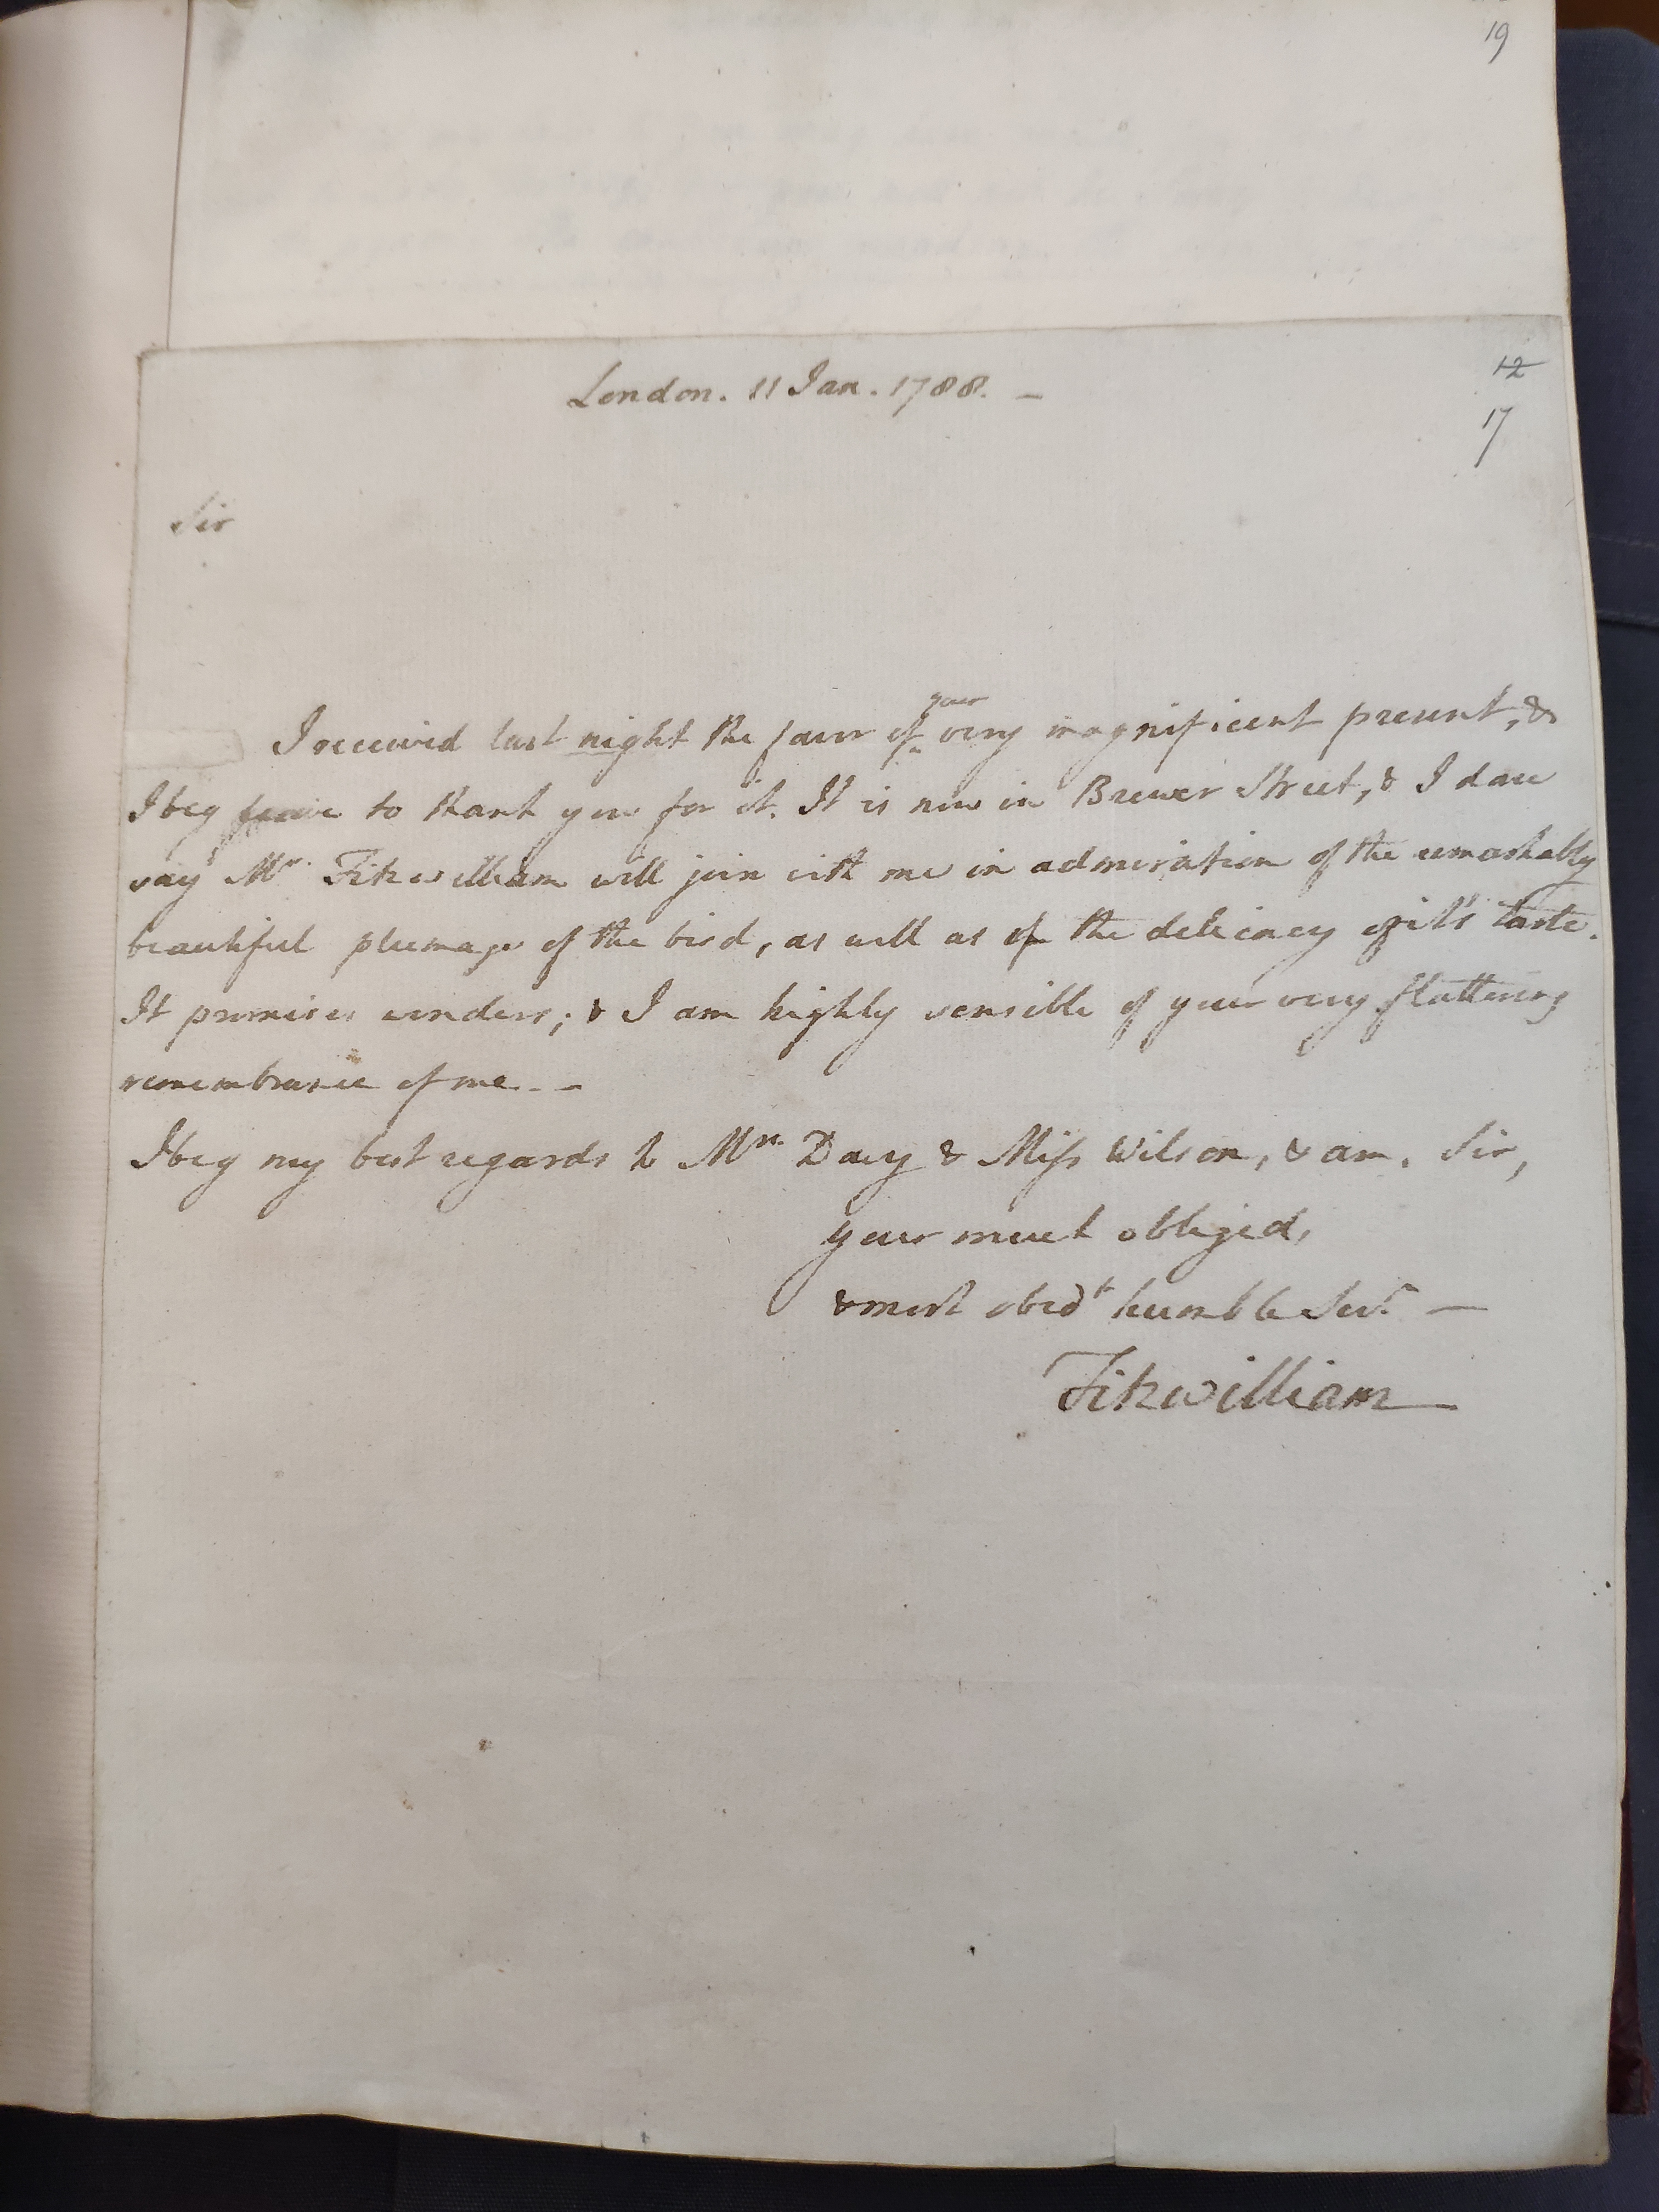 19
London. 11 Jan. 1788. —
12
17
Sir
I received last night the favr of your very magnificent present, &
I beg leave to thank you for it. It is now in Brewer Street, & I dare
say Mr. Fitzwilliam will join with me in admiration of the remarkably
beautiful plumage of the bird, as well as of the delicacy of it's taste.
It promises wonders; & I am highly sensible of your very flattering
remembrance of me. - —
I beg my best regards to Mrs. Dacy & Miss Wilson, & am, Sir,
your much obliged,
& most obedt humble Servt. —
Fitzwilliam